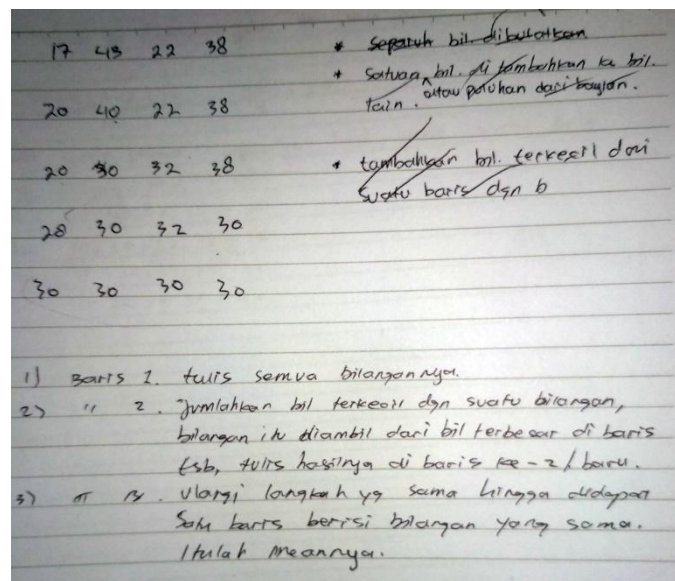 17 43 22 38
20 40 22 38
20 30 32 38
28 30 32 30
30 30 30 30
* separuh bil. dibulatkan
* Satuan bil. di tambahkan ke bil.
lain. atau puluhan dari bagian.
* tambahkan bil. terkecil dari
suatu baris dgn b
1) Baris 1. tulis semua bilangannya.
2) " 2. Jumlahkan bil terkecil dgn suatu bilangan,
bilangan itu diambil dari bil terbesar di baris
tsb, tulis hasilnya di baris ke-2/baru.
3) Ulangi langkah yg sama hingga didapat
Satu baris berisi bilangan yang sama.
Itulah meannya.